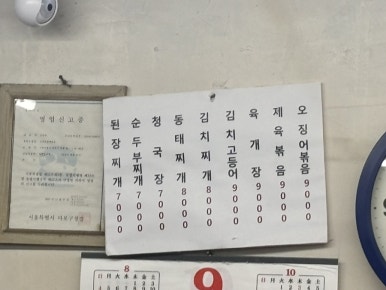 영업신고증
된장찌개 7000
순두부찌개 7000
청국장 7000
동태찌개 8000
김치찌개 8000
김치고등어 9000
육개장 9000
제육볶음 9000
오징어볶음 9000
8
日 月 火 水 木 金 土
9
10
日 月 火 水 木 金 土